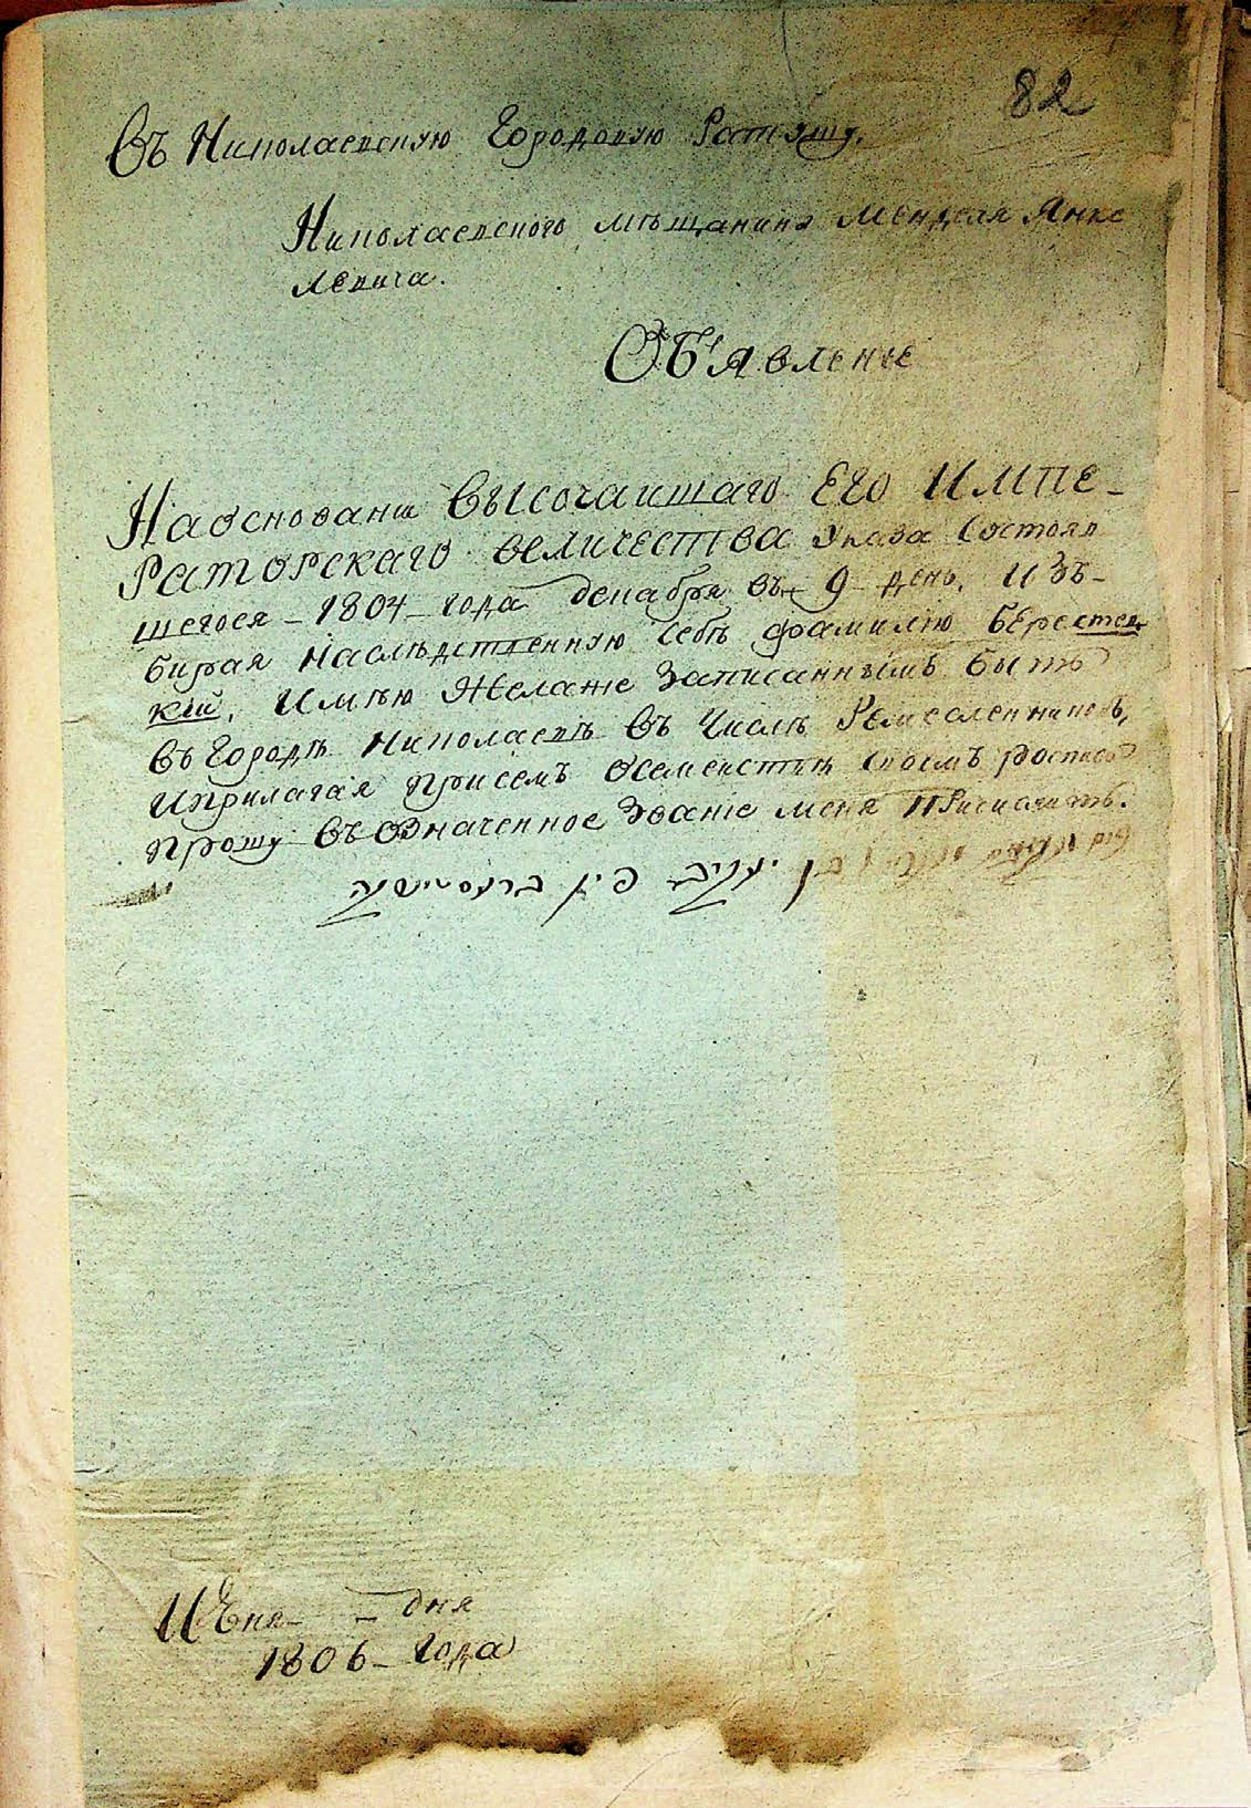 82
Въ Николаевскую Городовую Ратушу.
Николаевского мѣщанина Менделя Янке
левича.
Объявление
На основани Высочаишаго Его Импе-
раторскаго величества указа Состояв
шегося - 1804 - года декабря въ - 9 - день. И Зъ-
бирая наслѣдственную себѣ фамилию Берестец
кій. Имѣю Желание Записаннымъ быть
въ Городѣ Николаевѣ Въ Числѣ Ремесленниковъ,
и прилагая при семъ о семействѣ своемъ роспись
прошу въ означенное Звание меня Причислить.
בן יעקב פון
Июня - дня
1806 - Года